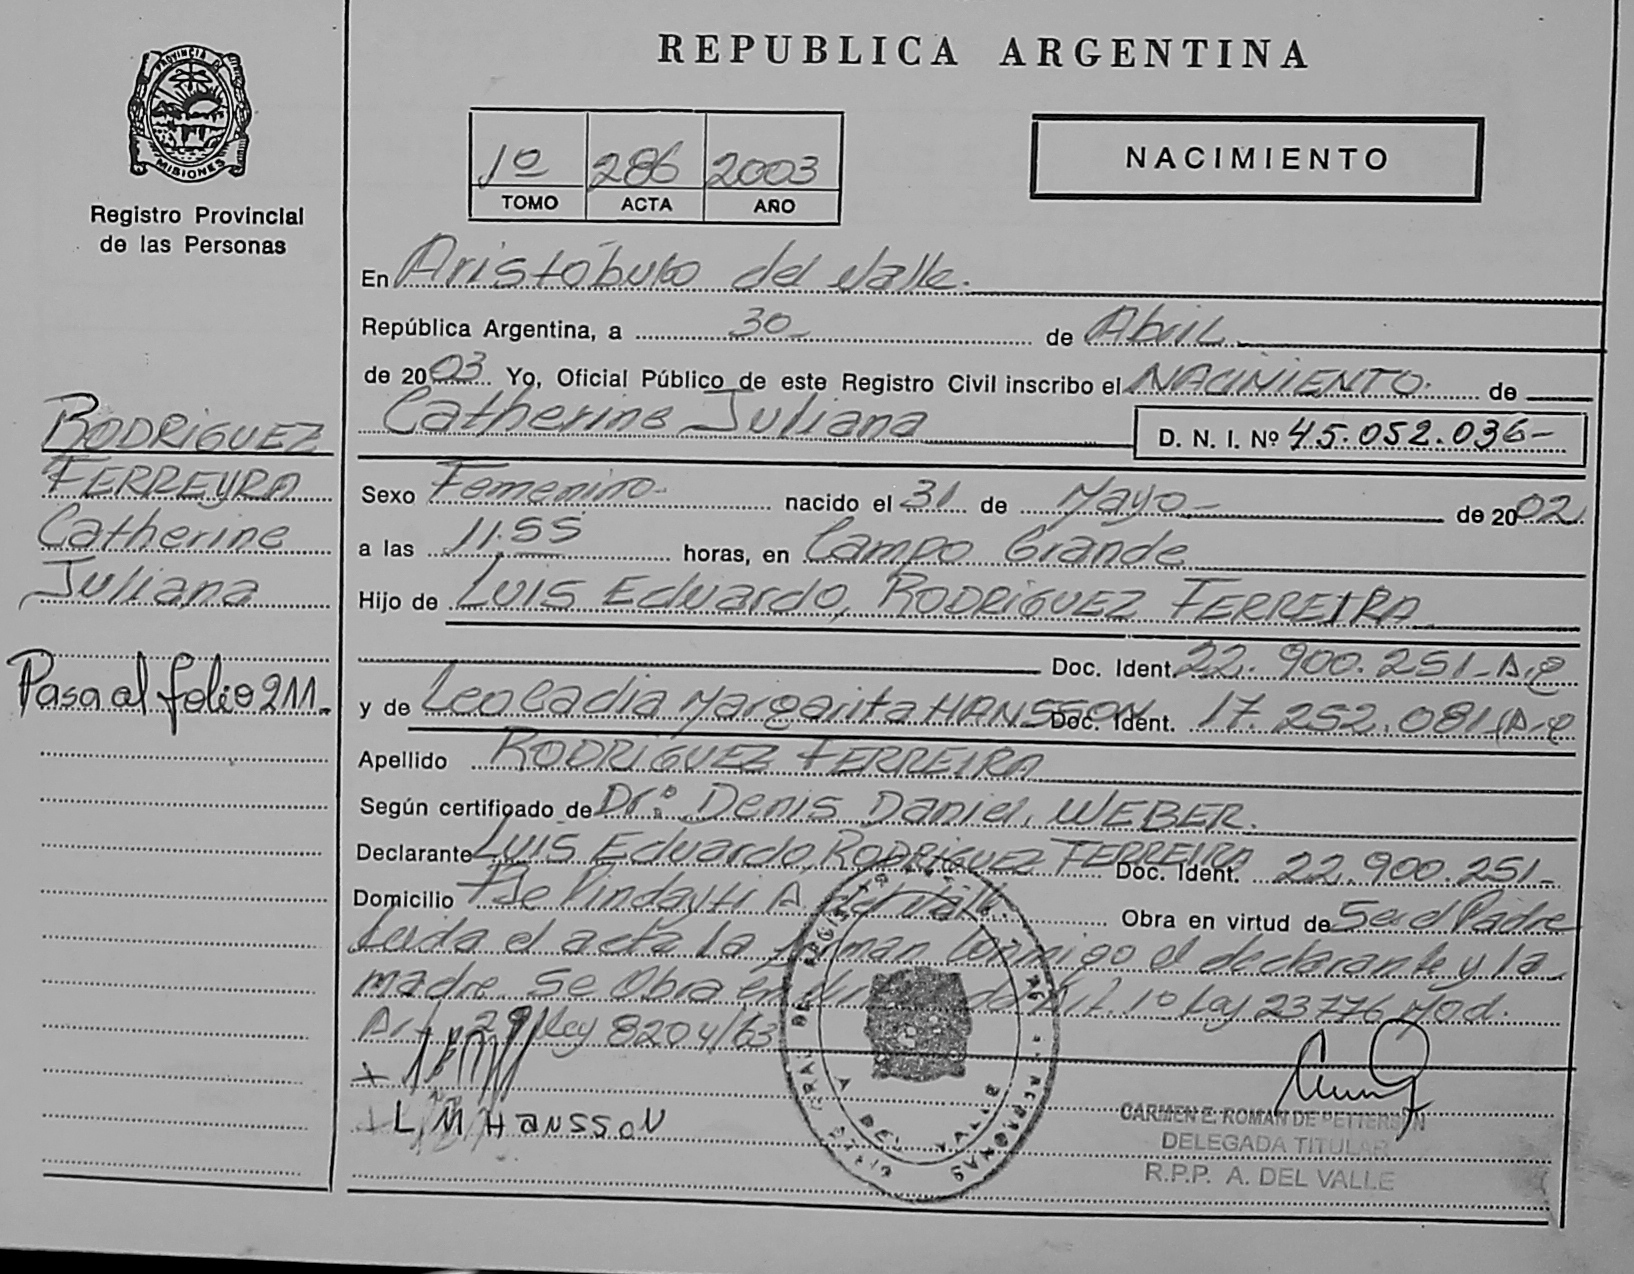 REPUBLICA ARGENTINA
PROVINCIA DE
MISIONES
Registro Provincial
de las Personas
1º 286 2003
TOMO ACTA AÑO
NACIMIENTO
En Aristóbulo del Valle.
República Argentina, a 30 de Abril
de 2003 Yo, Oficial Público de este Registro Civil inscribo el NACIMIENTO. de
Catherine Juliana D. N. I. Nº 45.052.036-
Sexo Femenino. nacido el 31 de Mayo de 2002
a las 11.55 horas, en Campo Grande
Hijo de Luis Eduardo, RODRIGUEZ FERREIRA
Doc. Ident. 22.900.251
y de Leocadia Margarita HANSSON Doc. Ident. 17.252.081
Apellido RODRIGUEZ FERREIRA
Según certificado de Dr.: Denis Daniel, WEBER.
Declarante Luis Eduardo, RODRIGUEZ FERREIRA Doc. Ident. 22.900.251-
Domicilio Pindayti A. del Valle. Obra en virtud de Ser el Padre
Leida el acta la firman conmigo el declarante y la
madre. Se Obra en 1º Ley 23776 Mod.
Art. 29 Ley 8204/63
L M HANSSON
CARMEN E. ROMAN DE PETTERSON
DELEGADA TITULAR
R.P.P. A. DEL VALLE
RODRIGUEZ
FERREYRA
Catherine
Juliana
Pasa al folio 211.